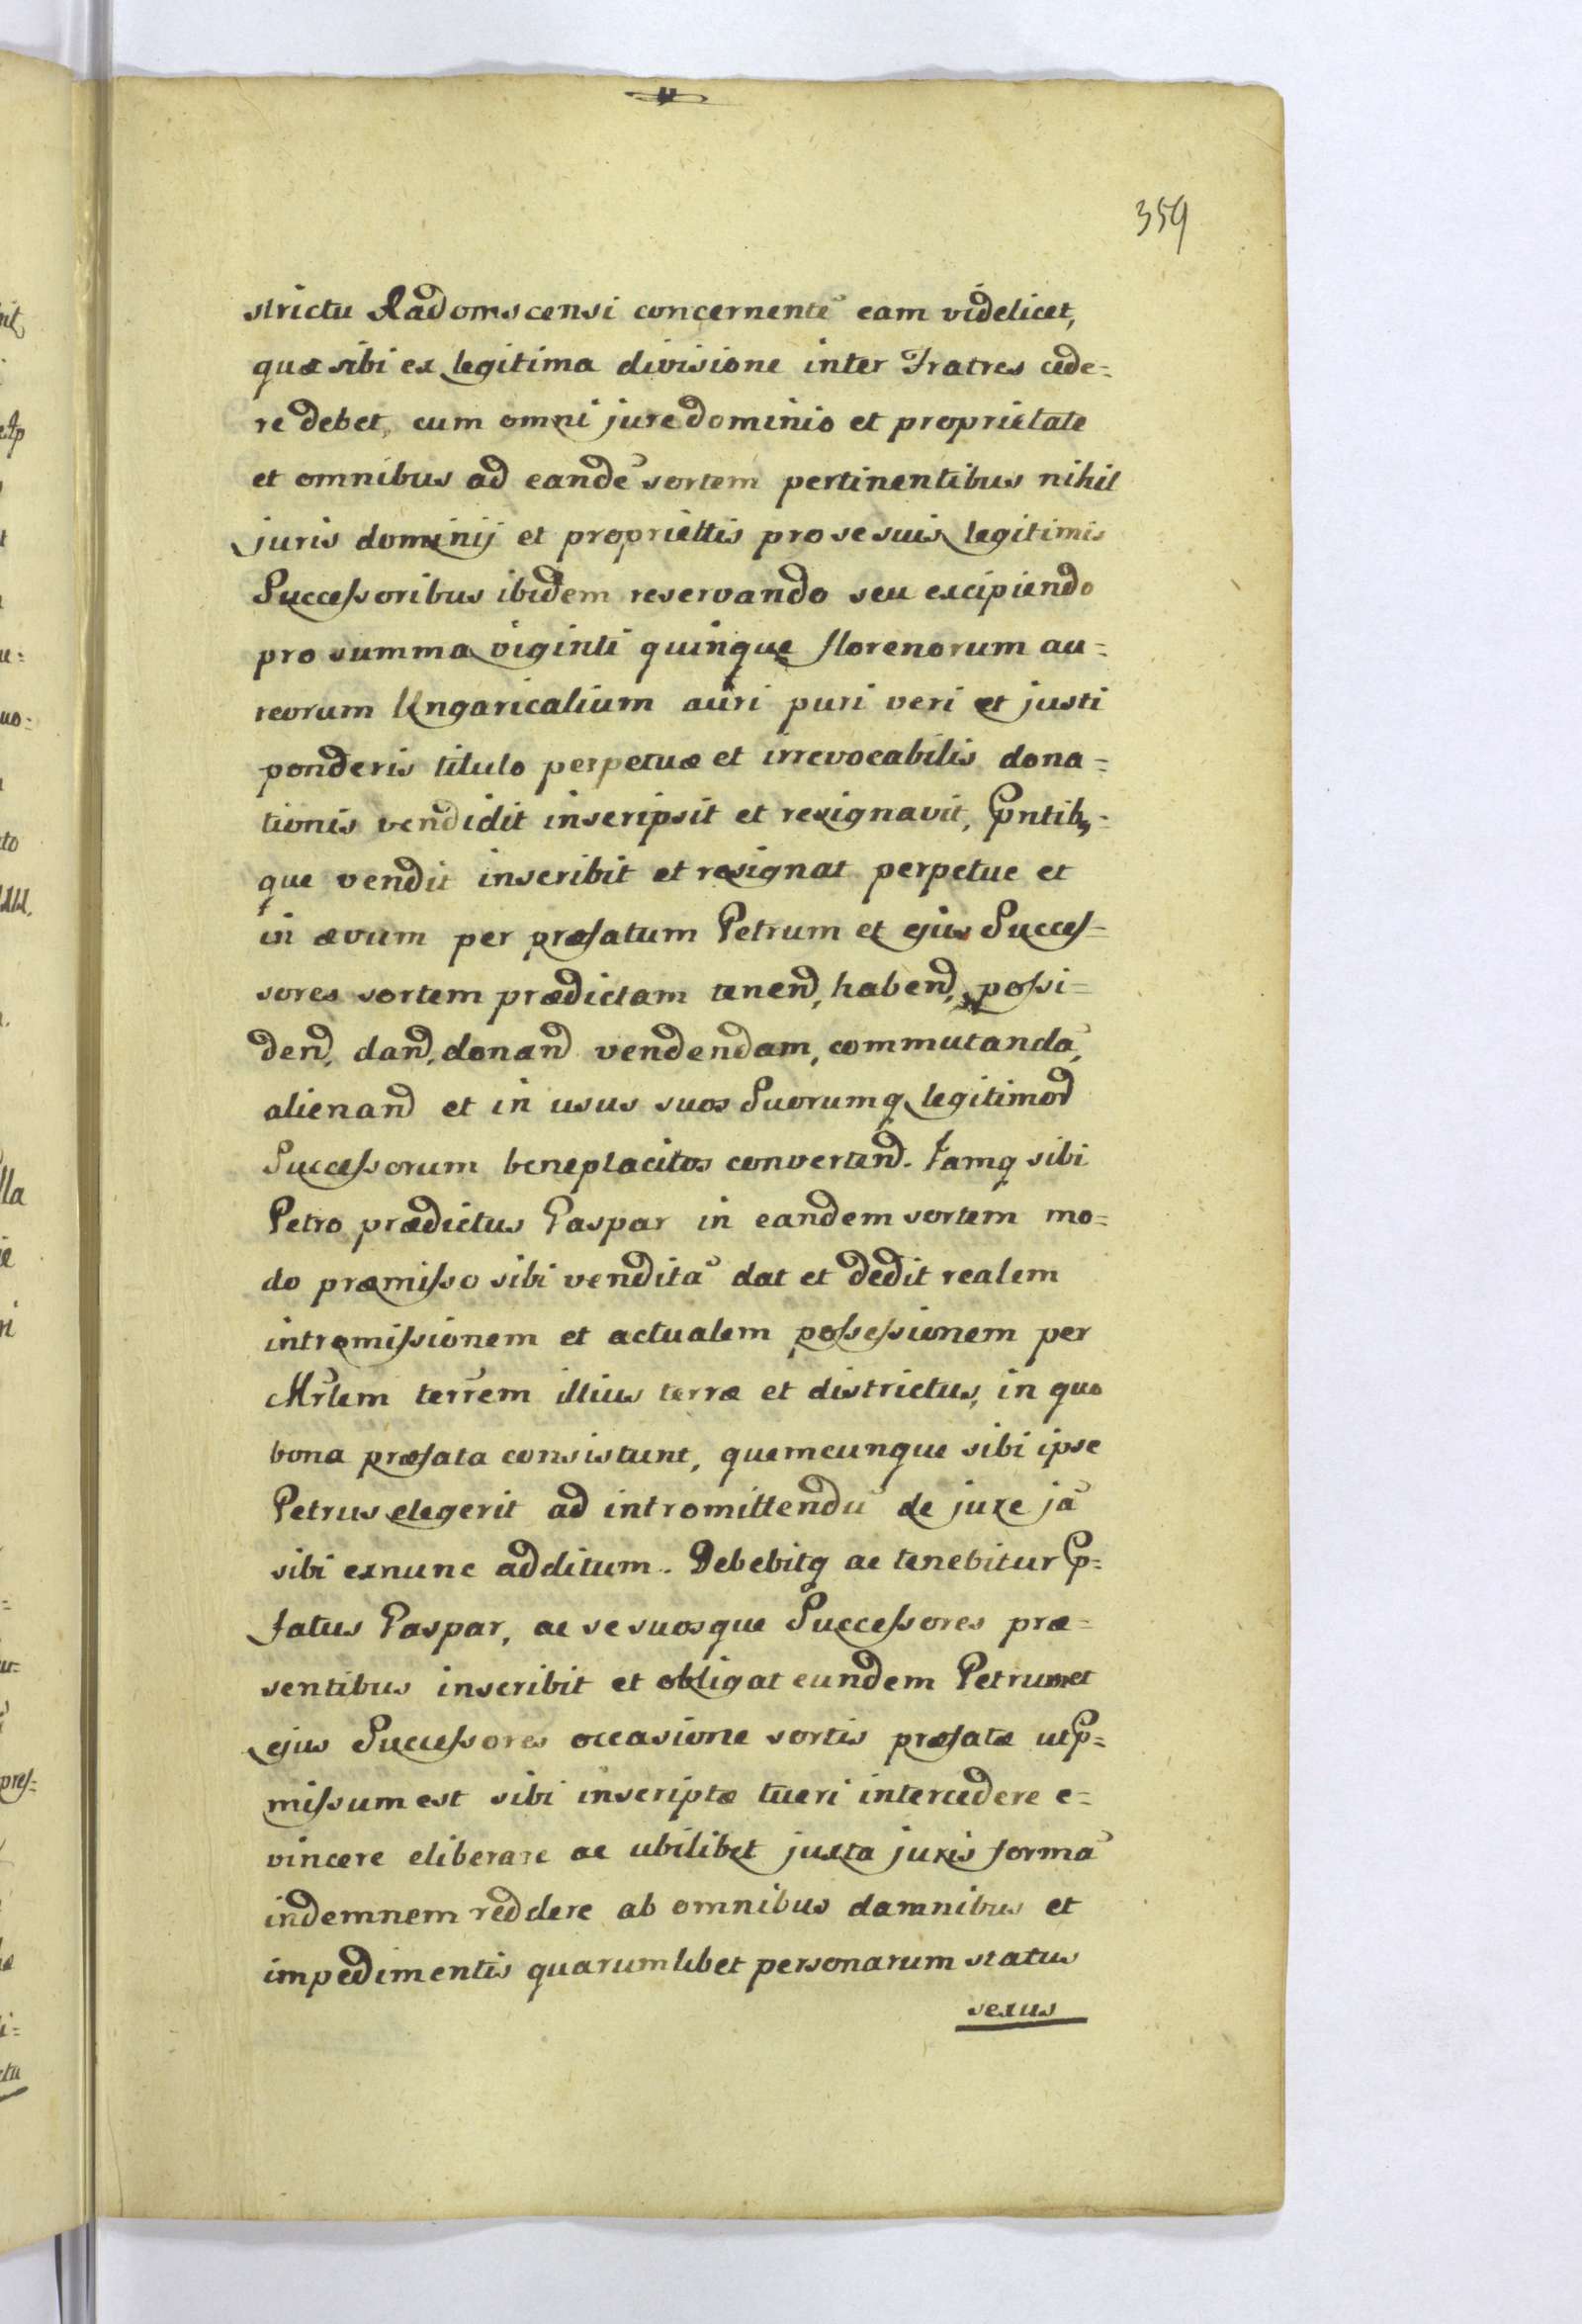 359
strictu Radomscensi concernentē eam videlicet,
quæ sibi ex legitima divisione inter Fratres cede=
re debet, cum omni jure dominio et proprietate
et omnibus ad eandē sortem pertinentibus nihil
juris dominij et propriettis pro se suis legitimis
Successoribus ibidem reservando seu excipiendo
pro summa viginti quinque florenorum au=
reorum Ungaricalium auri puri veri et justi
ponderis titulo perpetuæ et irrevocabilis dona=
tionis vendidit inscripsit et resignavit, Pntib,=
que vendit inscribit et resignat perpetue et
in ævum per præfatum Petrum et ejus Succes=
sores sortem prædictam tenend, habend, possi=
dend, dand, donand vendendam, commutandā,
alienand et in usus suos Suorumq legitimor
Successorum beneplacitos convertend. Jamq sibi
Petro prædictus Gaspar in eandem sortem mo=
do præmisso sibi venditā dat et dedit realem
intromissionem et actualem possessionem per
Mrlem terrem illius terræ et districtus, in quo
bona præfata consistunt, quemcunque sibi ipse
Petrus elegerit ad intromittendū de jure jā
sibi exnunc additum. Debebitq ac tenebitur P=
fatus Gaspar, ac se suosque Successores præ=
sentibus inscribit et obligat eundem Petrum et
ejus Successores occasione sortis præfatæ ut P=
missum est sibi inscriptæ tueri intercedere e=
vincere eliberare ac ubilibet juxta juris formā
indemnem reddere ab omnibus damnibus et
impedimentis quarumlibet personarum status
sexus